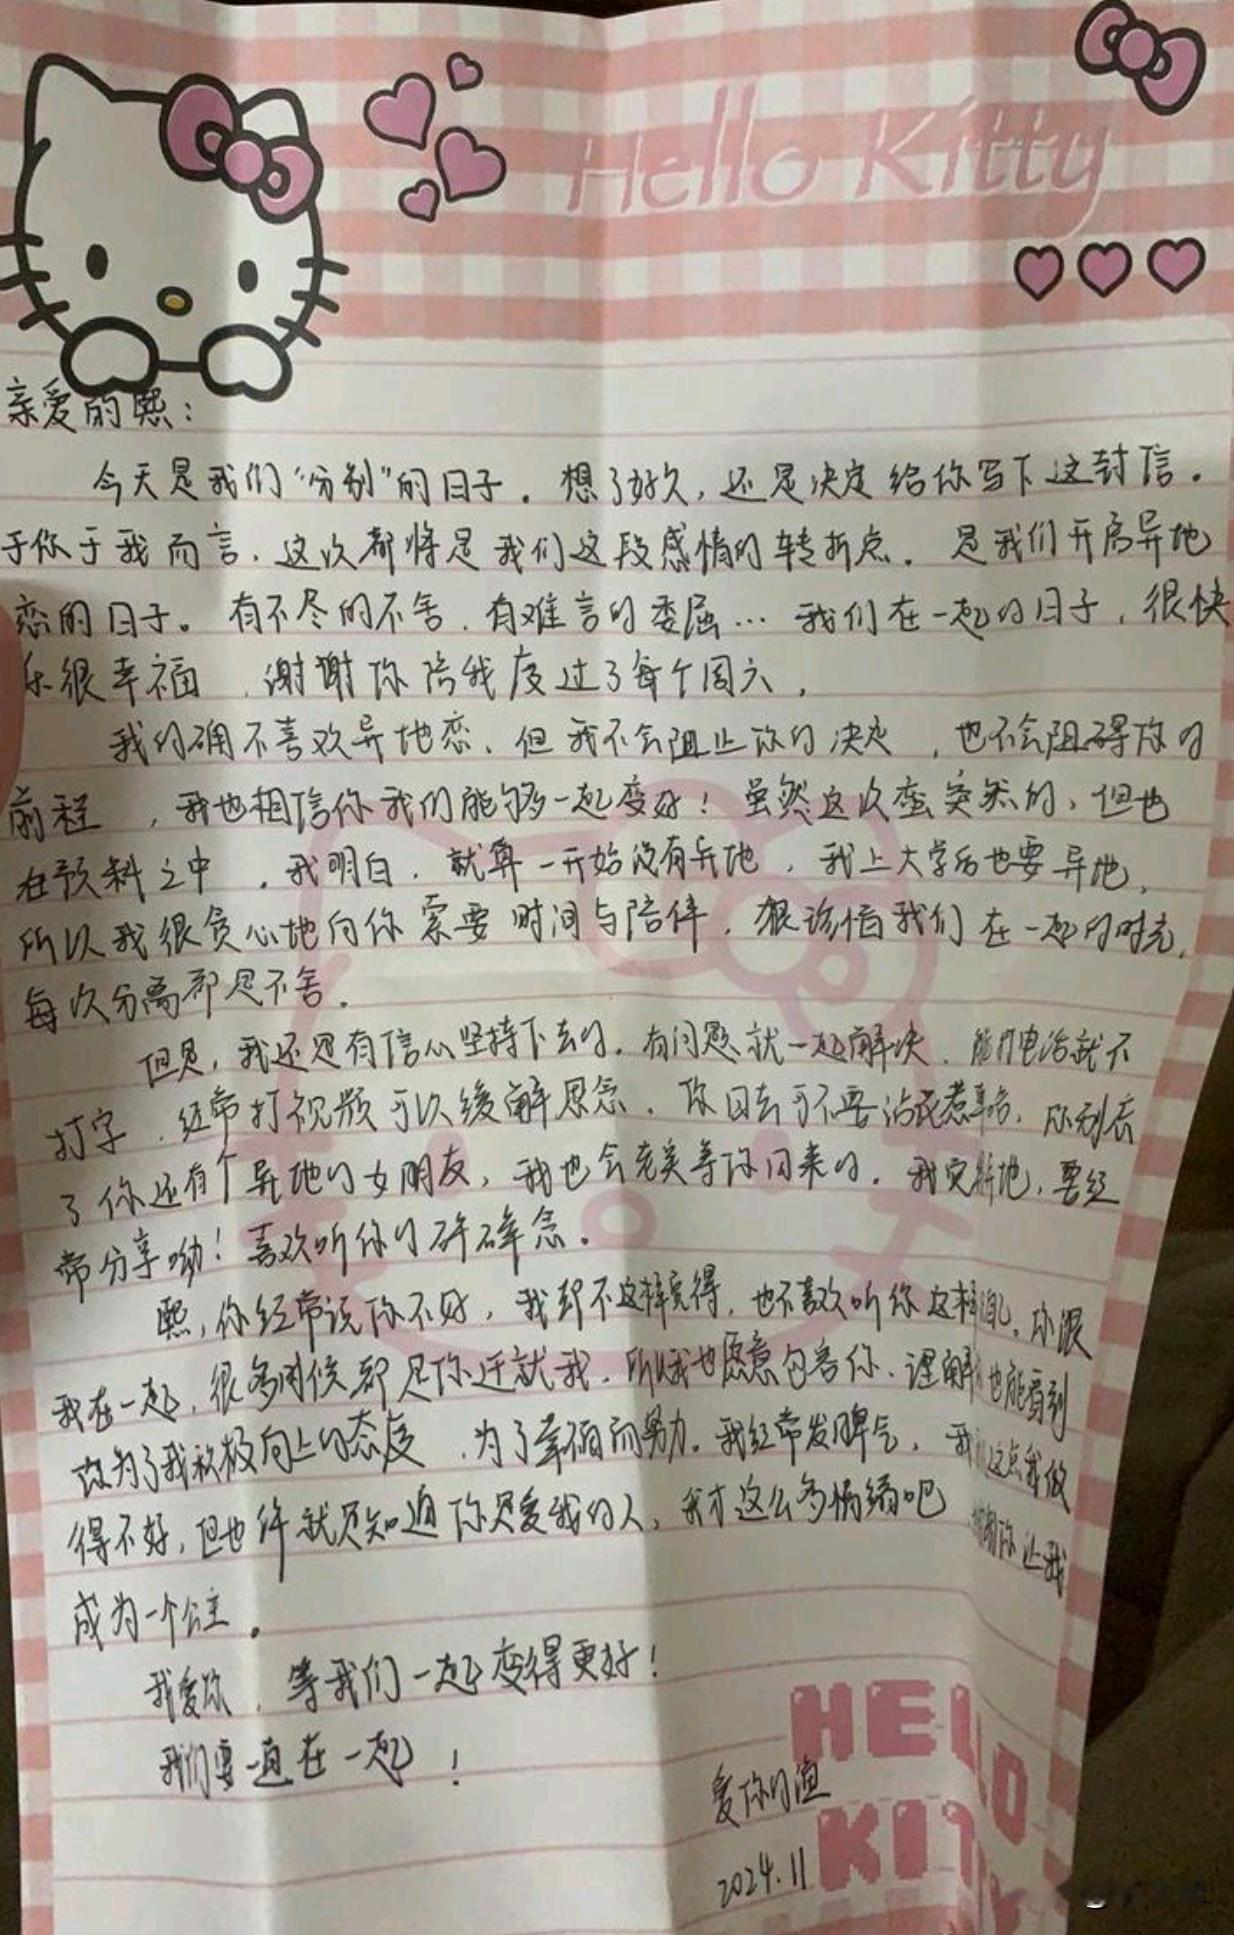 Hello Kitty
亲爱的熙：
今天是我们“分别”的日子。想了好久，还是决定给你写下这封信。
于你于我而言，这次都将是我们这段感情的转折点。是我们开启异地
恋的日子。有不尽的不舍，有难言的委屈…我们在一起的日子，很快
乐很幸福，谢谢你陪我度过了每个周六，
我的确不喜欢异地恋，但我不会阻止你的决定，也不会阻碍你的
前程，我也相信你我们能够一起变好！虽然这次蛮突然的，但也
在预料之中。我明白，就算一开始没有异地，我上大学后也要异地，
所以我很贪心地向你索要时间与陪伴，很珍惜我们在一起的时光，
每次分离都是不舍，
但是，我还是有信心坚持下去的。有问题就一起解决，能打电话就不
打字，经常打视频可以缓解思念，你回去可不要沾花惹草哈，你别忘
了你还有个异地的女朋友，我也会在美等你回来的。我 地，要经
常分享呦！喜欢听你的碎碎念。
熙，你经常说你不好，我却不这样觉得，也不喜欢听你这样 ，你跟
我在一起，很多时候都是你迁就我，所以我也愿意包容你、理解 也能看到
你为了我积极向上的态度，为了幸福而努力。我经常发脾气， 这点我做
得不好，但也许就是知道你是爱我的人，我才这么多情绪吧 你让我
成为一个公主。
我爱你，等我们一起变得更好！
我们要一直在一起！
爱你的渔
2024.11
HELLO
KITTY